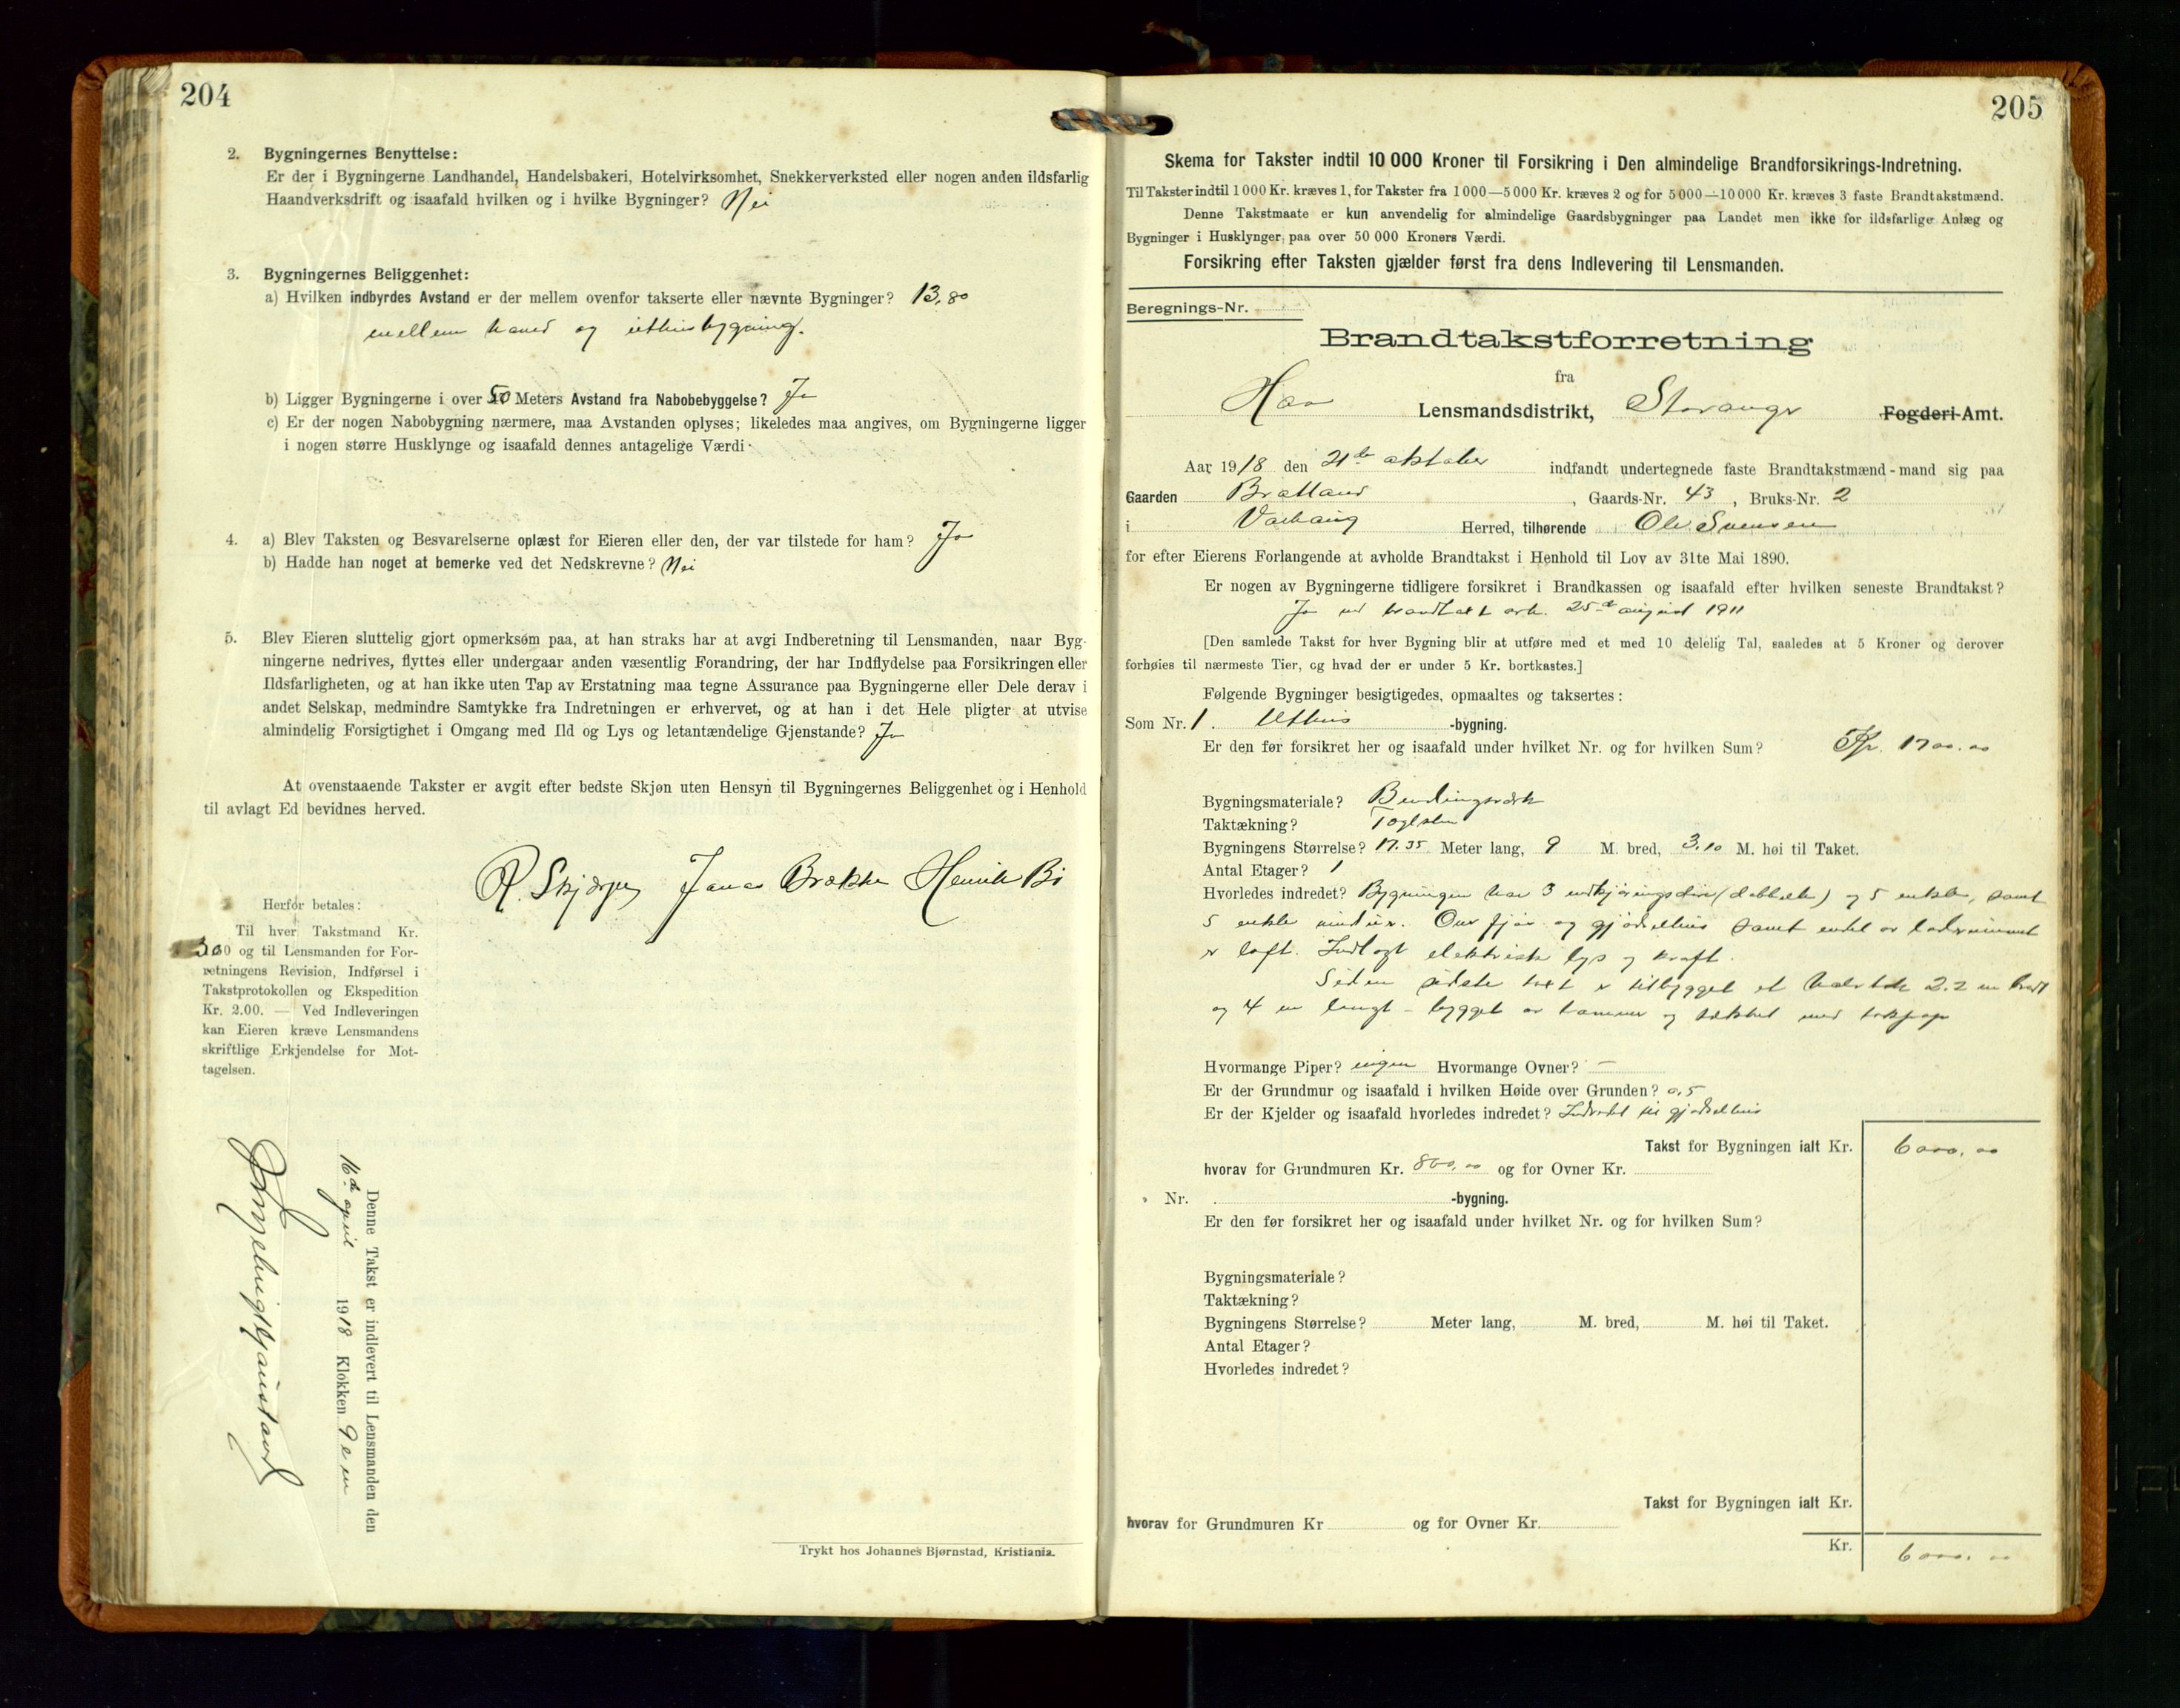 204
2. Bygningernes Benyttelse:
Er der i Bygningerne Landhandel, Handelsbakeri, Hotelvirksomhet, Snekkerverksted eller nogen anden ildsfarlig
Haandverksdrift og isaafald hvilken og i hvilke Bygninger? Nei
3. Bygningernes Beliggenhet:
a) Hvilken indbyrdes Avstand er der mellem ovenfor takserte eller nævnte Bygninger? 13,80
mellem og uthusbygning.
b) Ligger Bygningerne i over 50 Meters Avstand fra Nabobebyggelse? Ja
c) Er der nogen Nabobygning nærmere, maa Avstanden oplyses; likeledes maa angives, om Bygningerne ligger
i nogen større Husklynge og isaafald dennes antagelige Værdi
4. a) Blev Taksten og Besvarelserne oplæst for Eieren eller den, der var tilstede for ham? Ja
b) Hadde han noget at bemerke ved det Nedskrevne? Nei
5. Blev Eieren sluttelig gjort opmerksom paa, at han straks har at avgi Indberetning til Lensmanden, naar Byg-
ningerne nedrives, flyttes eller undergaar anden væsentlig Forandring, der har Indflydelse paa Forsikringen eller
Ildsfarligheten, og at han ikke uten Tap av Erstatning maa tegne Assurance paa Bygningerne eller Dele derav i
andet Selskap, medmindre Samtykke fra Indretningen er erhvervet, og at han i det Hele pligter at utvise
almindelig Forsigtighet i Omgang med Ild og Lys og letantændelige Gjenstande? Ja
At ovenstaaende Takster er avgit efter bedste Skjøn uten Hensyn til Bygningernes Beliggenhet og i Henhold
til avlagt Ed bevidnes herved.
R. Skjærpe Jonas Brække Henrik Bø
Herfor betales:
Til hver Takstmand Kr.
og til Lensmanden for For-
retningens Revision, Indførsel i
Takstprotokollen og Ekspedition
Kr. 2.00. — Ved Indleveringen
kan Eieren kræve Lensmandens
skriftlige Erkjendelse for Mot-
tagelsen.
Denne Takst er indlevert til Lensmanden den
16de april 1918 Klokken 9 em
Trykt hos Johannes Bjørnstad, Kristiania.
205
Skema for Takster indtil 10 000 Kroner til Forsikring i Den almindelige Brandforsikrings-Indretning.
Til Takster indtil 1 000 Kr. kræves 1, for Takster fra 1 000—5 000 Kr. kræves 2 og for 5 000—10 000 Kr. kræves 3 faste Brandtakstmænd.
Denne Takstmaate er kun anvendelig for almindelige Gaardsbygninger paa Landet men ikke for ildsfarlige Anlæg og
Bygninger i Husklynger paa over 50 000 Kroners Værdi.
Forsikring efter Taksten gjælder først fra dens Indlevering til Lensmanden.
Beregnings-Nr.
Brandtakstforretning
fra
Haa Lensmandsdistrikt, Stavanger Fogderi-Amt.
Aar 1918 den 21de oktober indfandt undertegnede faste Brandtakstmænd-mand sig paa
Gaarden Bratland, Gaards-Nr. 43, Bruks-Nr. 2
i Varhaug Herred, tilhørende Ole Svensen
for efter Eierens Forlangende at avholde Brandtakst i Henhold til Lov av 31te Mai 1890.
Er nogen av Bygningerne tidligere forsikret i Brandkassen og isaafald efter hvilken seneste Brandtakst?
Ja ved brandtakst 25de august 1911
[Den samlede Takst for hver Bygning blir at utføre med et med 10 delelig Tal, saaledes at 5 Kroner og derover
forhøies til nærmeste Tier, og hvad der er under 5 Kr. bortkastes.]
Følgende Bygninger besigtigedes, opmaaltes og taksertes:
Som Nr. 1. Uthus -bygning.
Er den før forsikret her og isaafald under hvilket Nr. og for hvilken Sum? Kr. 1700.00
Bygningsmateriale? Bindingsverk
Taktækning? Taglsten
Bygningens Størrelse? 17.35 Meter lang, 9 M. bred, 3.10 M. høi til Taket.
Antal Etager? 1
Hvorledes indredet? Bygningen har 3 indkjøringsdøre (dobbelte) og 5 enkle, samt
5 enkle vinduer. Over fjøs og gjødselhus samt endel av laderummet
er loft. Indlagt elektrisk lys og kraft.
Siden sidste takst er tilbygget et 2.2 m bredt
og 4 m langt - bygget av og tækket med takpap
Hvormange Piper? ingen Hvormange Ovner? —
Er der Grundmur og isaafald i hvilken Høide over Grunden? 0,5
Er der Kjelder og isaafald hvorledes indredet? Indredet til gjødselhus
Takst for Bygningen ialt Kr. 6000,00
hvorav for Grundmuren Kr. 800,00 og for Ovner Kr.
Nr. -bygning.
Er den før forsikret her og isaafald under hvilket Nr. og for hvilken Sum?
Bygningsmateriale?
Taktækning?
Bygningens Størrelse? Meter lang, M. bred, M. høi til Taket.
Antal Etager?
Hvorledes indredet?
Takst for Bygningen ialt Kr.
hvorav for Grundmuren Kr og for Ovner Kr.
Kr. 6000.00